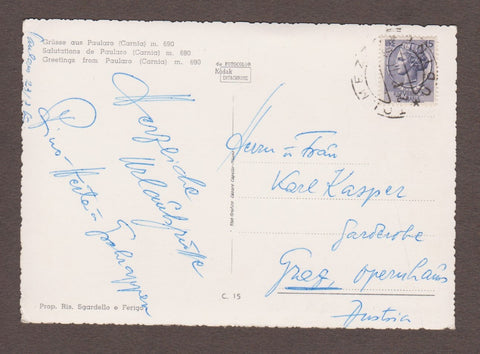 Grüsse aus Paularo (Carnia) m. 690
Salutations de Paularo (Carnia) m. 690
Greetings from Paularo (Carnia) m. 690
da FOTOCOLOR
Kodak
EKTACHROME
Herzliche
Urlaubsgrüße
Herrn u Frau
Karl Kasper
Garderobe
Graz, Opernhaus
Austria
C. 15
Prop. Ris. Sgardello e Ferigo
TOLMEZZO